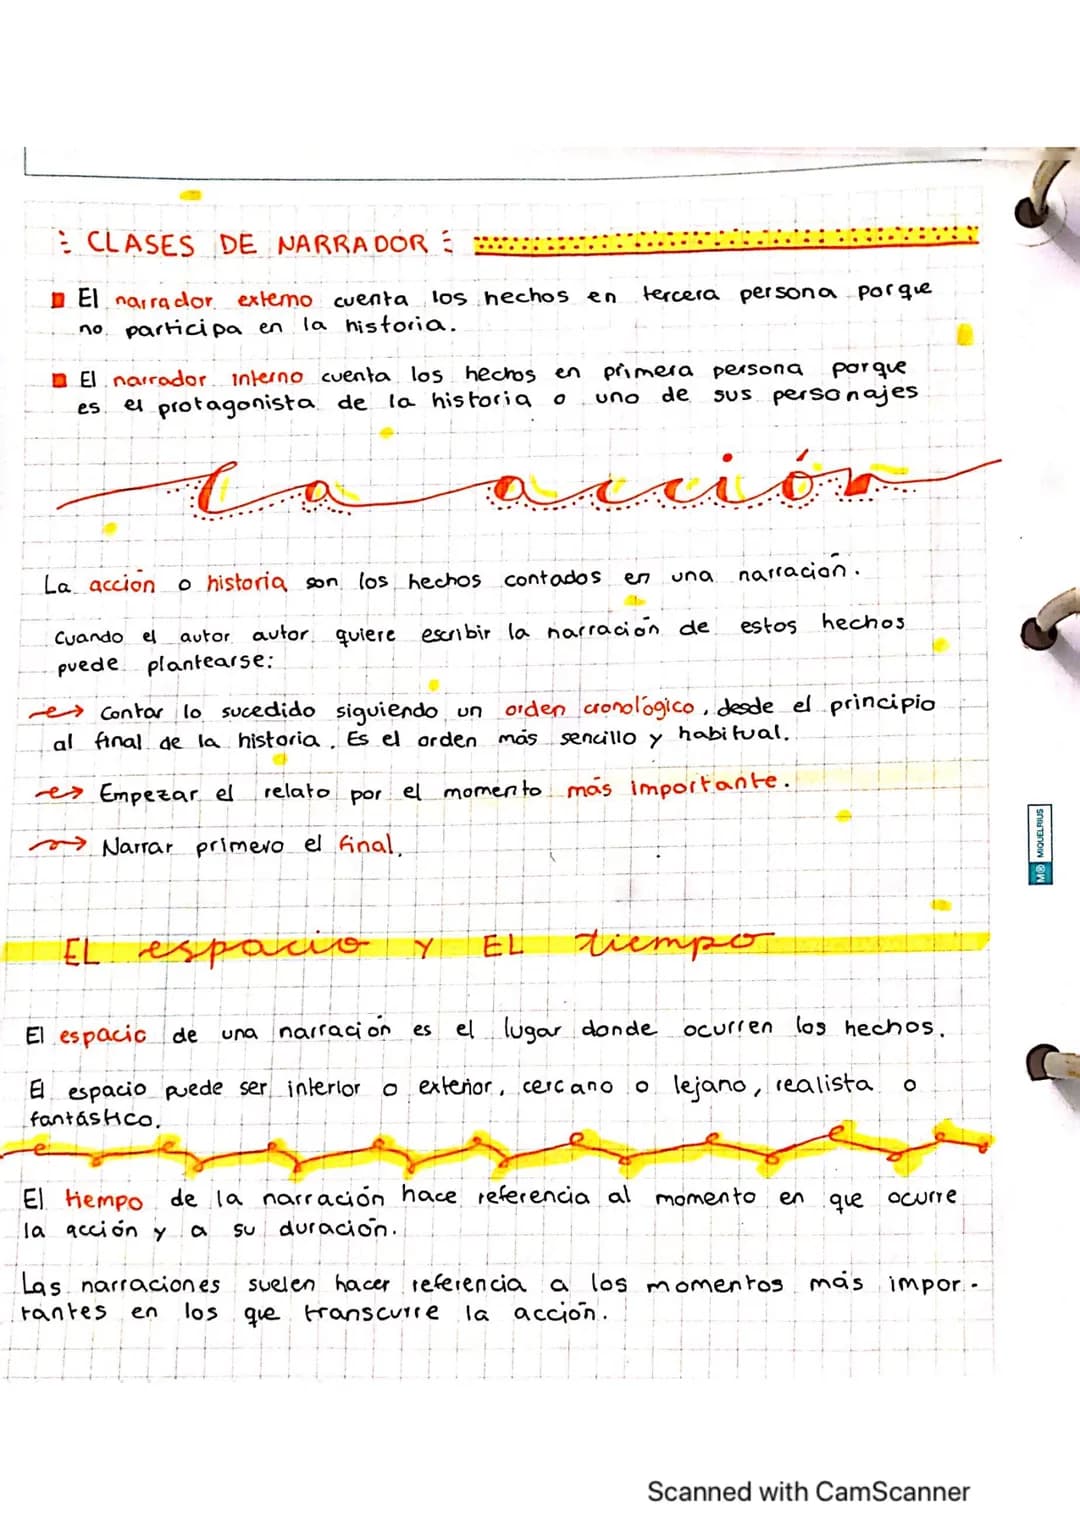 CLASES DE NARRADOR
El narrador externo cuenta los hechos en tercera persona porque
no participa en la historia.
El narrador interno cuenta los hechos en primera persona porque
es el protagonista de la historia o uno de sus personajes
La acción
La acción o historia son los hechos contados en una narración.
Cuando el autor autor quiere escribir la narración de estos hechos
puede plantearse:
→ Contar lo sucedido siguiendo un orden cronológico, desde el principio
al final de la historia. Es el orden más sencillo y habitual.
→ Empezar el relato por el momento más importante.
→ Narrar primero el final.
EL espacio Y EL tiempo
El espacio de una narración es el lugar donde ocurren los hechos.
El espacio puede ser interior o exterior, cercano o lejano, realista o
fantástico.
El tiempo de la narración hace referencia al momento en que ocurre
la acción y a su duración.
Las narraciones suelen hacer referencia a los momentos más impor-
tantes en los que transcurre la acción.
MIQUELRIUS
Scanned with CamScanner